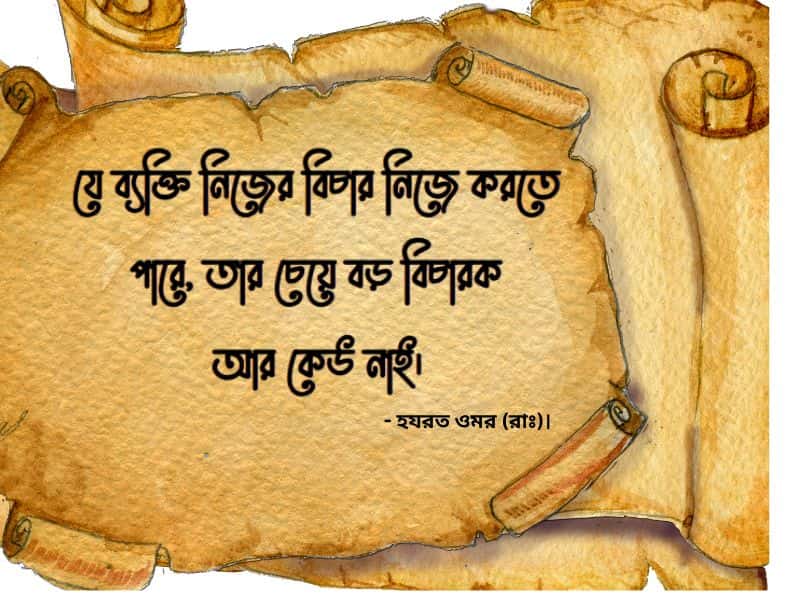 যে ব্যক্তি নিজের বিচার নিজে করতে
পারে, তার চেয়ে বড় বিচারক
আর কেউ নাই।
- হযরত ওমর (রাঃ)।